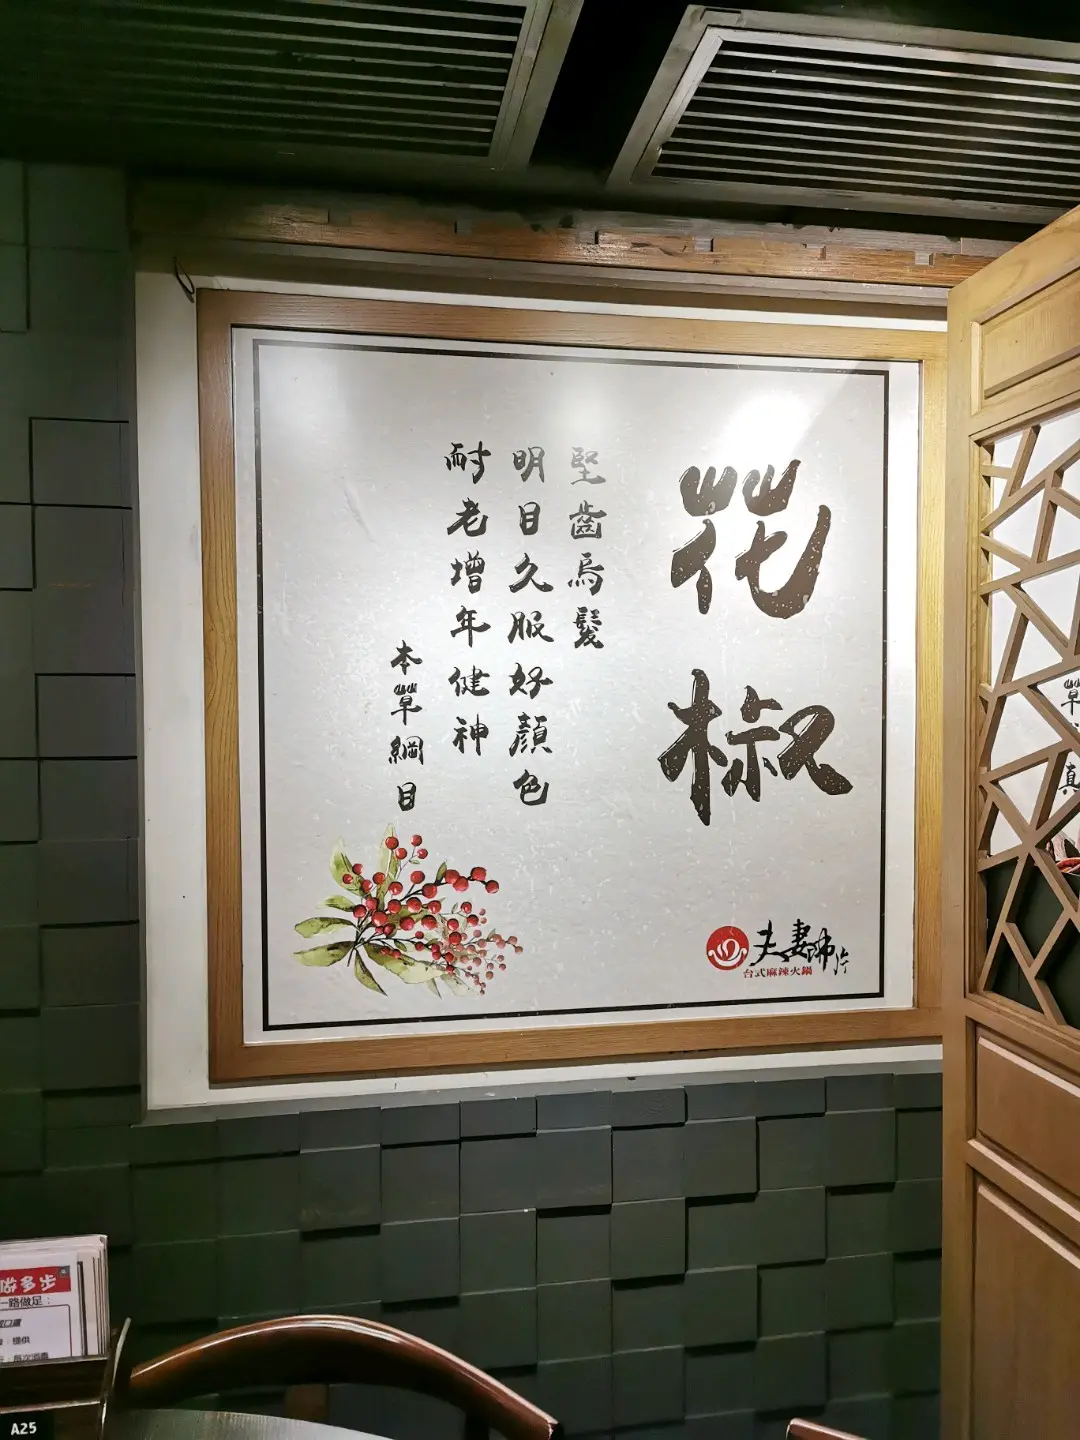 花椒
堅齒烏髮
明目久服好顏色
耐老增年健神
本草綱目
夫妻沸片
台式麻辣火鍋
做多步
一路做足：
提供
A25